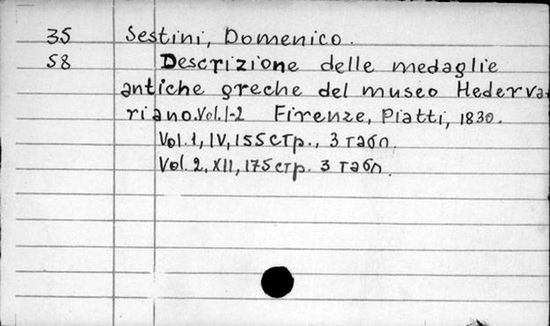 35 Sestini, Domenico.
58 Descrizione delle medaglie
antiche greche del museo Hederva-
riano. Vol. 1-2 Firenze, Piatti, 1830.
Vol. 1, IV, 155 стр., 3 табл.
Vol. 2, XII, 175 стр. 3 табл.